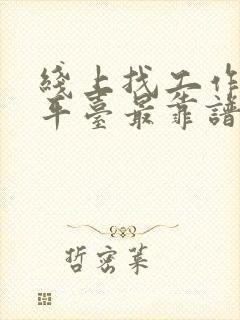 綫上找工作
平臺最靠譜
哲密萊